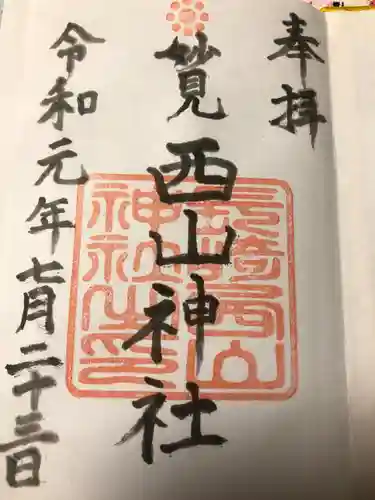 奉拝
妙見西山神社
令和元年七月二十三日
長崎西山
神社之印